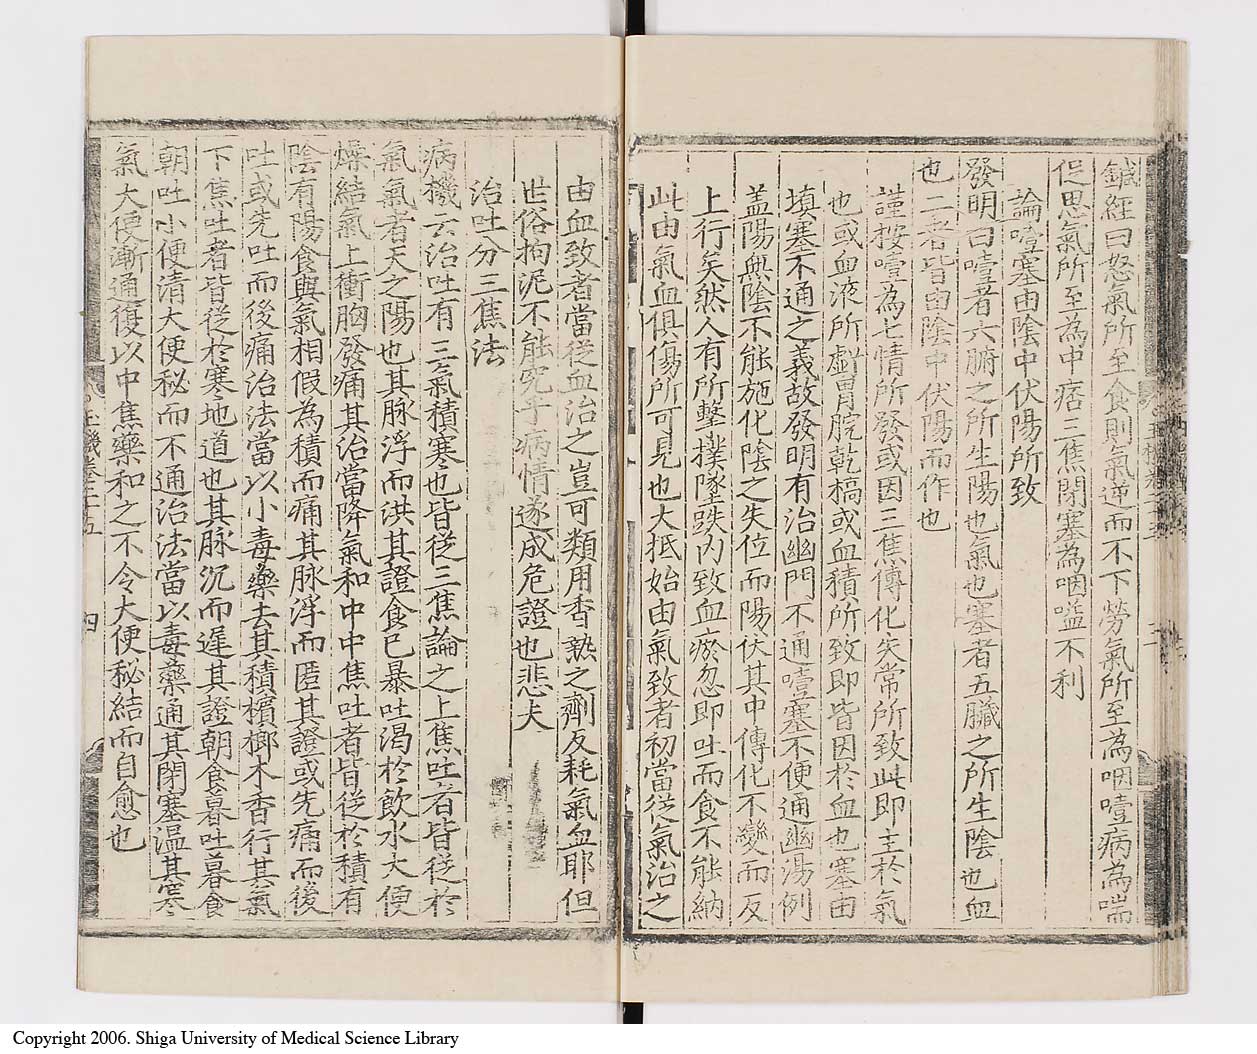 鍼經曰怒氣所至食則氣逆而不下勞氣所至為咽噎病為喘
促思氣所至為中痞三焦閉塞為咽嗌不利
論噎塞由陰中伏陽所致
發明曰噎者六腑之所生陽也氣也塞者五臟之所生陰也血
也二者皆由陰中伏陽而作也
謹按噎為七情所發或因三焦傳化失常所致此即主於氣
也或血液所虧胃脘乾槁或血積所致即皆因於血也塞由
填塞不通之義故發明有治幽門不通噎塞不便通幽湯例
盖陽無陰不能施化陰之失位而陽伏其中傳化不變而反
上行矣然人有所墼撲墜跌內致血瘀忽即吐而食不能納
此由氣血俱傷所可見也大抵始由氣致者初當從氣治之
由血致者當從血治之豈可類用香熱之劑反耗氣血耶但
世俗拘泥不能究乎病情遂成危證也悲夫
治吐分三焦法
病機云治吐有三氣積寒也皆從三焦論之上焦吐者皆從於
氣氣者天之陽也其脉浮而洪其證食已暴吐渴於飲水大便
燥結氣上衝胸發痛其治當降氣和中中焦吐者皆從於積有
陰有陽食與氣相假為積而痛其脉浮而匿其證或先痛而後
吐或先吐而後痛治法當以小毒藥去其積檳榔木香行其氣
下焦吐者皆從於寒地道也其脉沉而遲其證朝食暮吐暮食
朝吐小便清大便秘而不通治法當以毒藥通其閉塞溫其寒
氣大便漸通復以中焦藥和之不令大便秘結而自愈也
玉機卷二十五
四
Copyright 2006. Shiga University of Medical Science Library